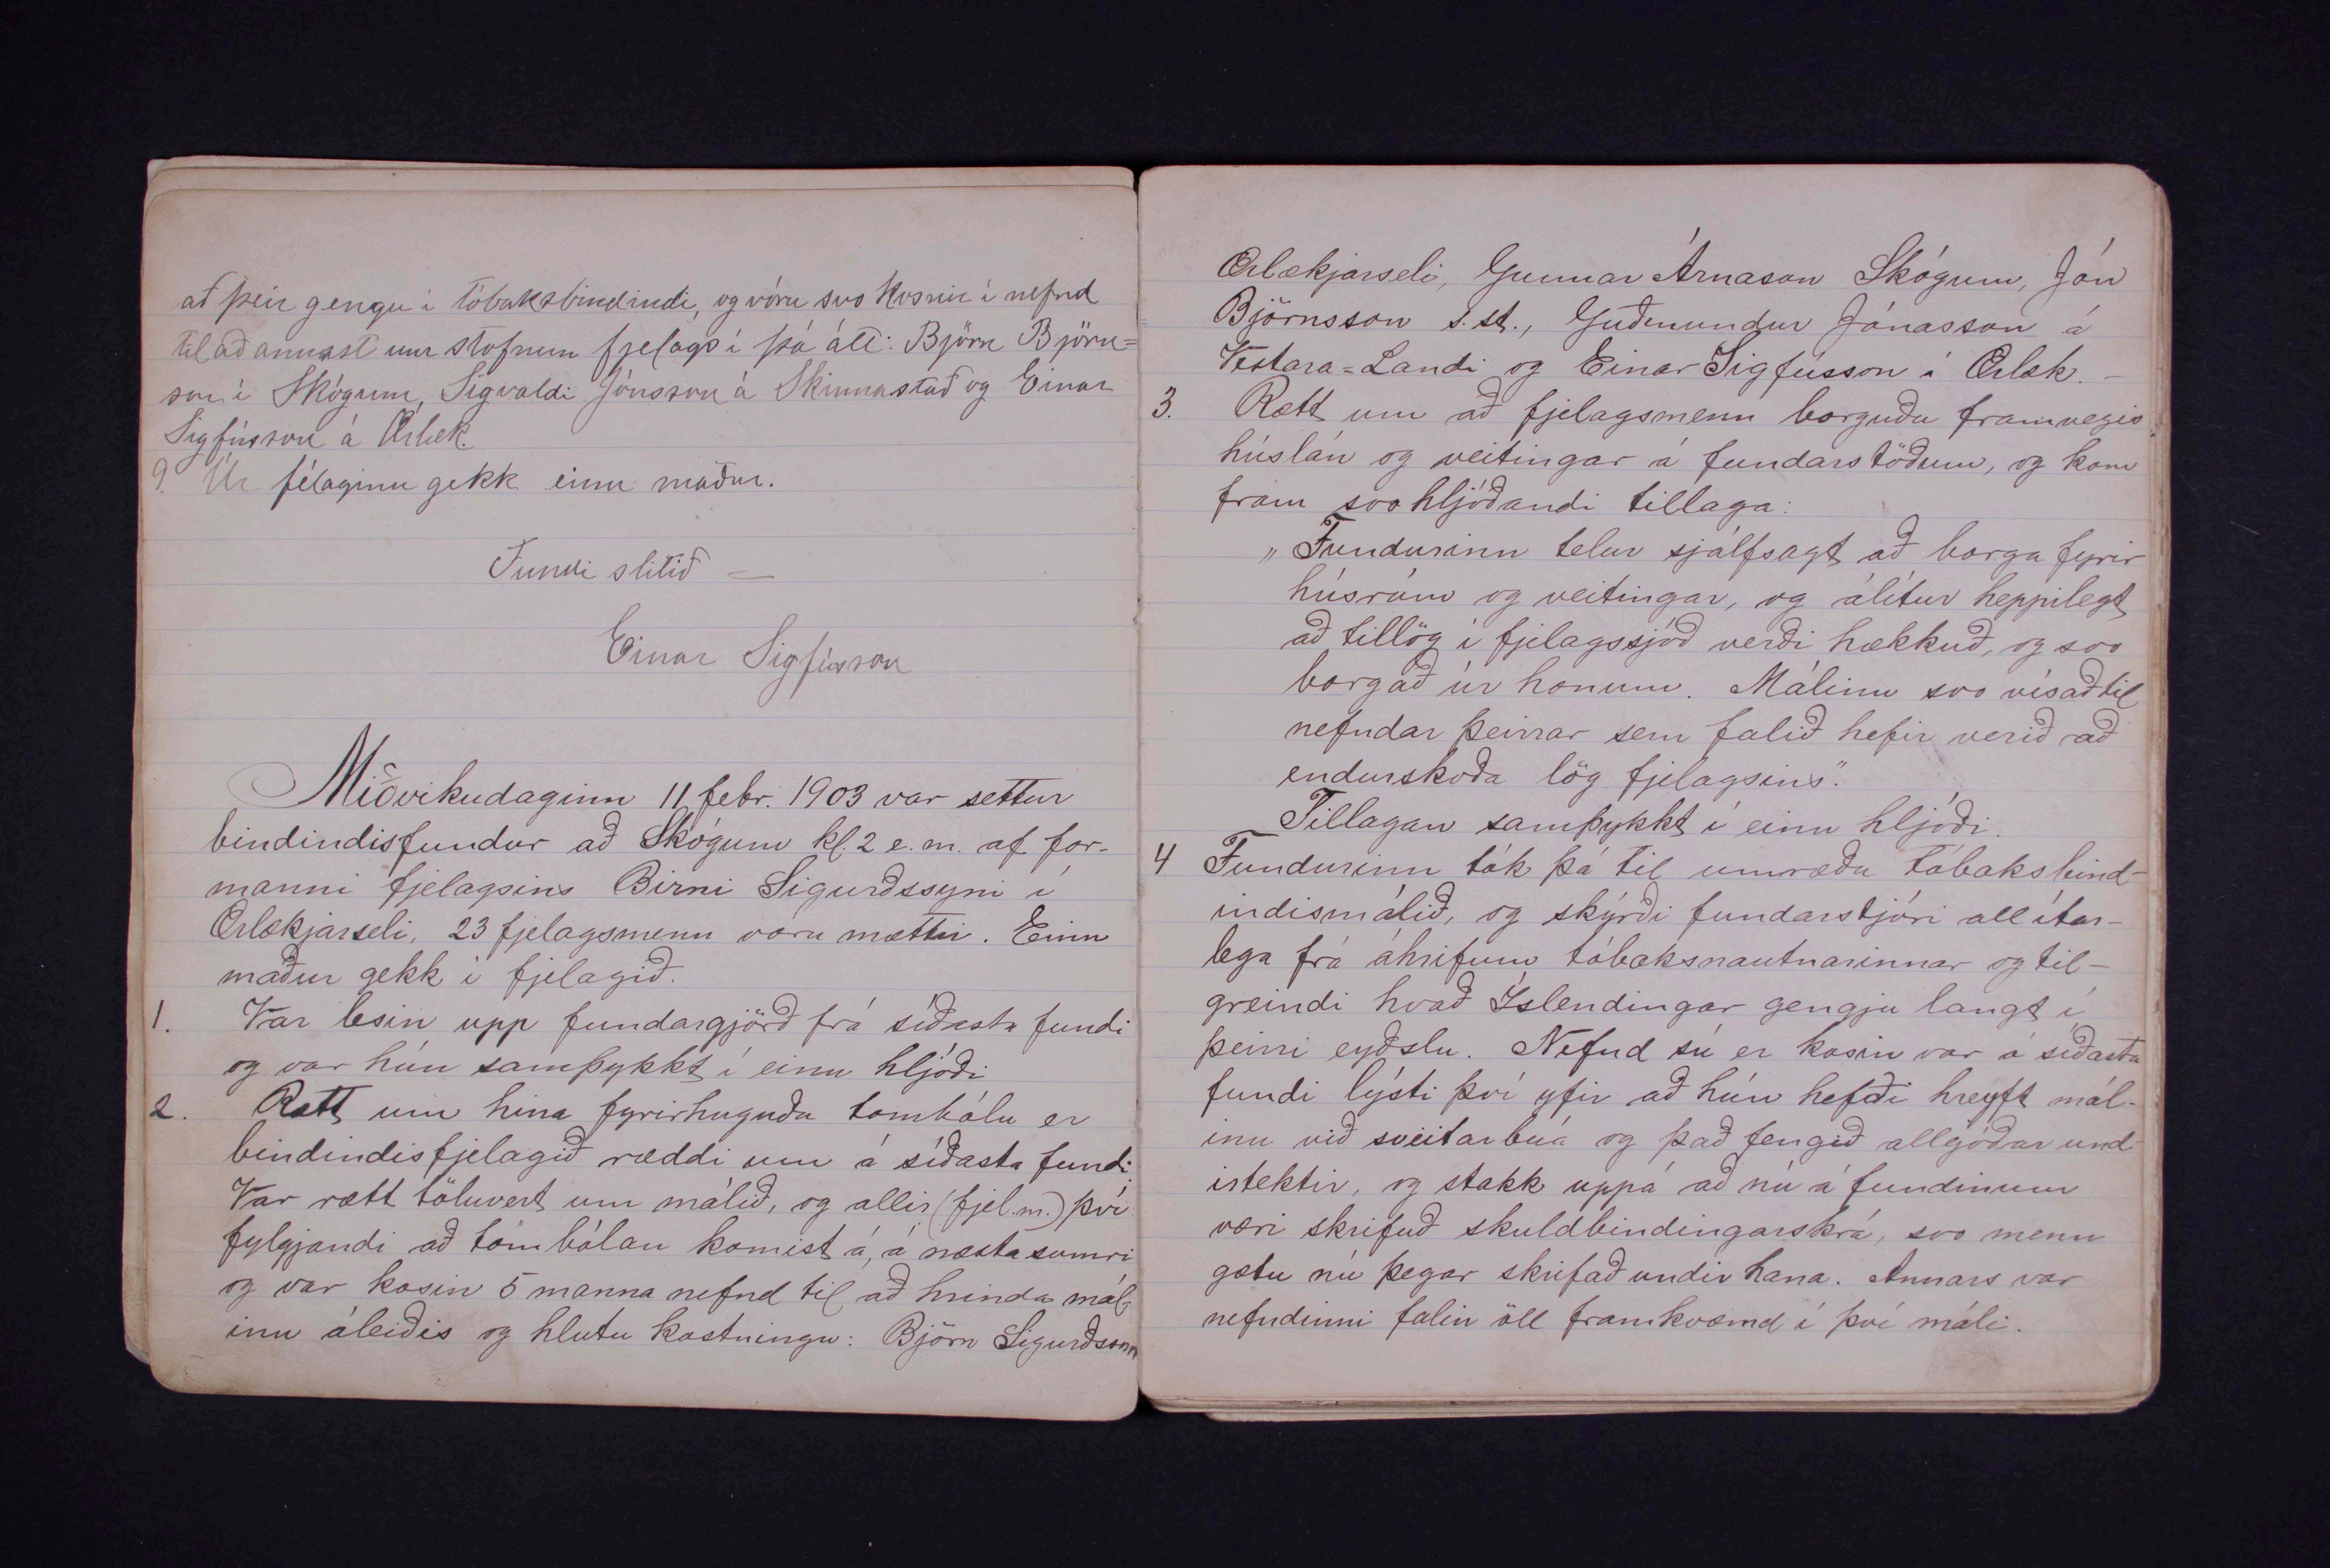 að þeir gengu í tóbaksbindindi, og vóru svo kosnir í nefnd
til að annast um stofnun fjelags í þá átt: Björn Björns=
son í Skógum, Sigvaldi Jónsson á Skinnastað og Einar
Sigfússon á Ærlæk.
9. Úr félaginu gekk einn maður.
Fundi slitið —
Einar Sigfússon
Miðvikudaginn 11 febr. 1903 var settur
bindindisfundur að Skógum kl. 2 e. m. af for-
manni fjelagsins Birni Sigurðssyni í
Ærlækjarseli, 23 fjelagsmenn voru mættir. Einn
maður gekk í fjelagið.
1. Var lesin upp fundargjörð frá síðasta fundi
og var hún samþykkt í einu hljóði
2. Rætt um hina fyrirhuguðu tombólu er
bindindisfjelagið ræddi um á síðasta fundi.
Var rætt töluvert um málið, og allir (fjel.m.) því
fylgjandi að tombólan komist á, á næsta sumri
og var kosin 5 manna nefnd til að hrinda mál-
inu áleiðis og hlutu kostningu: Björn Sigurðsson
Ærlækjarseli, Gunnar Árnason Skógum, Jón
Björnsson s. st., Guðmundur Jónasson á
Vestara=Landi og Einar Sigfússon á Ærlæk. —
3. Rætt um að fjelagsmenn borguðu framvegis
húslán og veitingar á fundarstöðum, og kom
fram svohljóðandi tillaga:
„Fundurinn telur sjálfsagt að borga fyrir
húsrúm og veitingar, og álítur heppilegt
að tillög í fjelagssjóð verði hækkuð, og svo
borgað úr honum. Málinu svo vísað til
nefndar þeirrar sem falið hefir verið að
endurskoða lög fjelagsins".
Tillagan samþykkt í einu hljóði.
4 Fundurinn tók þá til umræðu tóbaksbind-
indismálið, og skýrði fundarstjóri all ítar-
lega frá áhrifum tóbaksnautnarinnar og til-
greindi hvað Íslendingar gengju langt í
þeirri eyðslu. Nefnd sú er kosin var á síðasta
fundi lýsti því yfir að hún hefði hreyft mál-
inu við sveitarbúa og það fengið allgóðar und-
irtektir, og stakk uppá að nú á fundinum
væri skrifuð skuldbindingarskrá, svo menn
gætu nú þegar skrifað undir hana. Annars var
nefndinni falin öll framkvæmd í því máli.